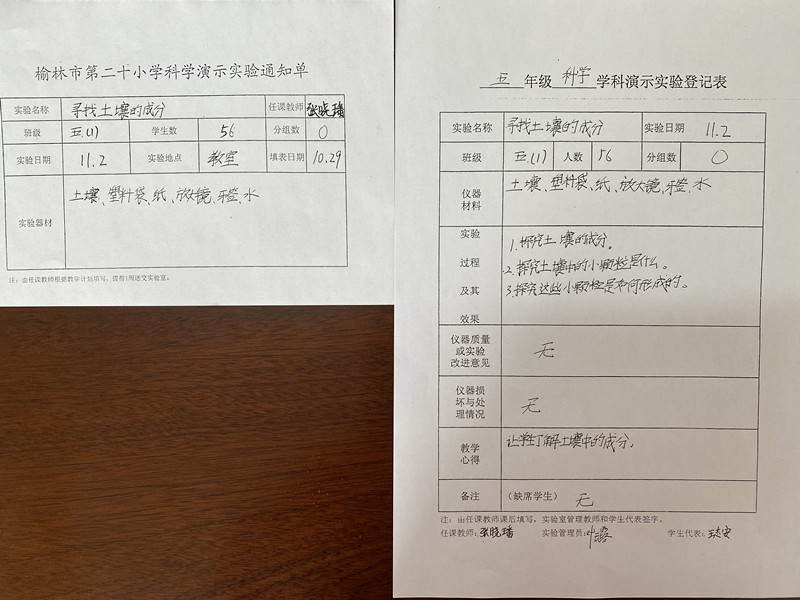 榆林市第二十小学科学演示实验通知单
实验名称 寻找土壤的成分 任课教师 张晓璠
班级 五.(1) 学生数 56 分组数 0
实验日期 11.2 实验地点 教室 填表日期 10.29
实验器材 土壤、塑料袋、纸、放大镜、牙签、水
注:由任课教师根据教学计划填写,提前1周送交实验室。
五 年级 科学 学科演示实验登记表
实验名称 寻找土壤的成分 实验日期 11.2
班级 五.(1) 人数 56 分组数 0
仪器材料 土壤、塑料袋、纸、放大镜、牙签、水
实验过程及其效果
1.探究土壤的成分。
2.探究土壤中的小颗粒是什么。
3.探究这些小颗粒是如何形成的。
仪器质量或实验改进意见 无
仪器损坏与处理情况 无
教学心得 让学生了解土壤中的成分。
备注 (缺席学生) 无
注:由任课教师课后填写,实验室管理教师和学生代表签字。
任课教师:张晓璠 实验管理员: 学生代表: